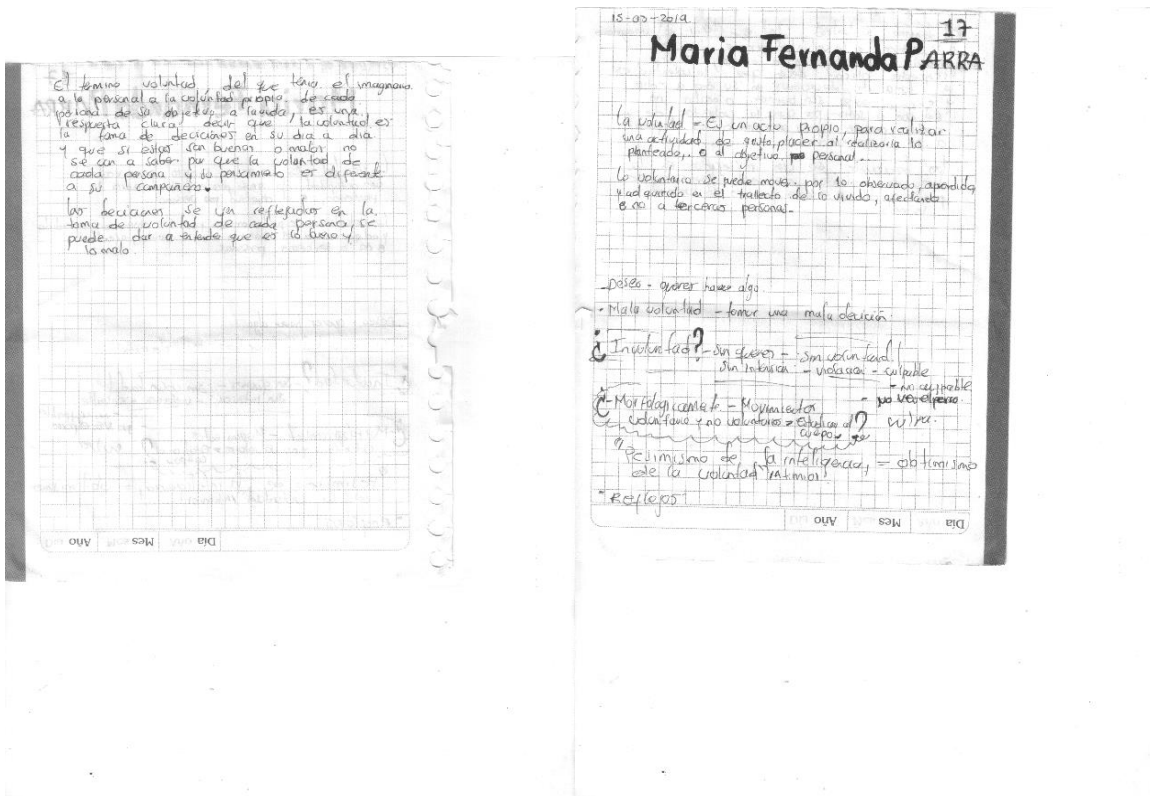 El termino voluntad del que tenia el imaginario
a la personal a la voluntad propio de cada
persona de su objetivo a la vida, es una
respuesta clara decir que la voluntad es
la toma de deciciones en su dia a dia
y que si estas son buenas o malas no
se van a saber por que la voluntad de
cada persona y su pensamieto es diferente
a su compañero.
las deciciones se ven reflejadas en la
toma de voluntad de cada persona, se
puede dar a enteder que es lo bueno y
lo malo.
Año Mes Día
15-03-2019
17
Maria Fernanda PARRA
la voluntad - Es un acto propio, para realizar
una actividad de gusto, placer al realizarla lo
planteado, o al objetivo personal..
Lo voluntario se puede mover por lo observado, aprendido
y adquirido en el trallecto de lo vivido, afectando
o no a terceras personas.
Deseo - querer hacer algo
- Mala voluntad - tomar una mala decición.
¿Involuntad? - sin querer - sin voluntad!
sin intención - violación - culpable
- no culpable
- no veo el perro
¿- Morfologicamete - Movimientos
voluntario y no voluntarios > estudian al? cultura.
cuerpo
"Pecimismo de la inteligencia, = obtimismo
de la voluntad intimo"
- Reflejos
Año Mes Día